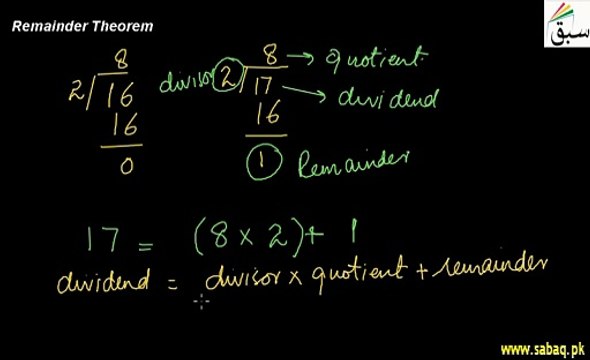 Remainder Theorem
سبق
8
2 / 16
16
0
8 → quotient
divisor 2 / 17 → dividend
16
1 Remainder
17 = (8 × 2) + 1
dividend = divisor × quotient + remainder
www.sabaq.pk